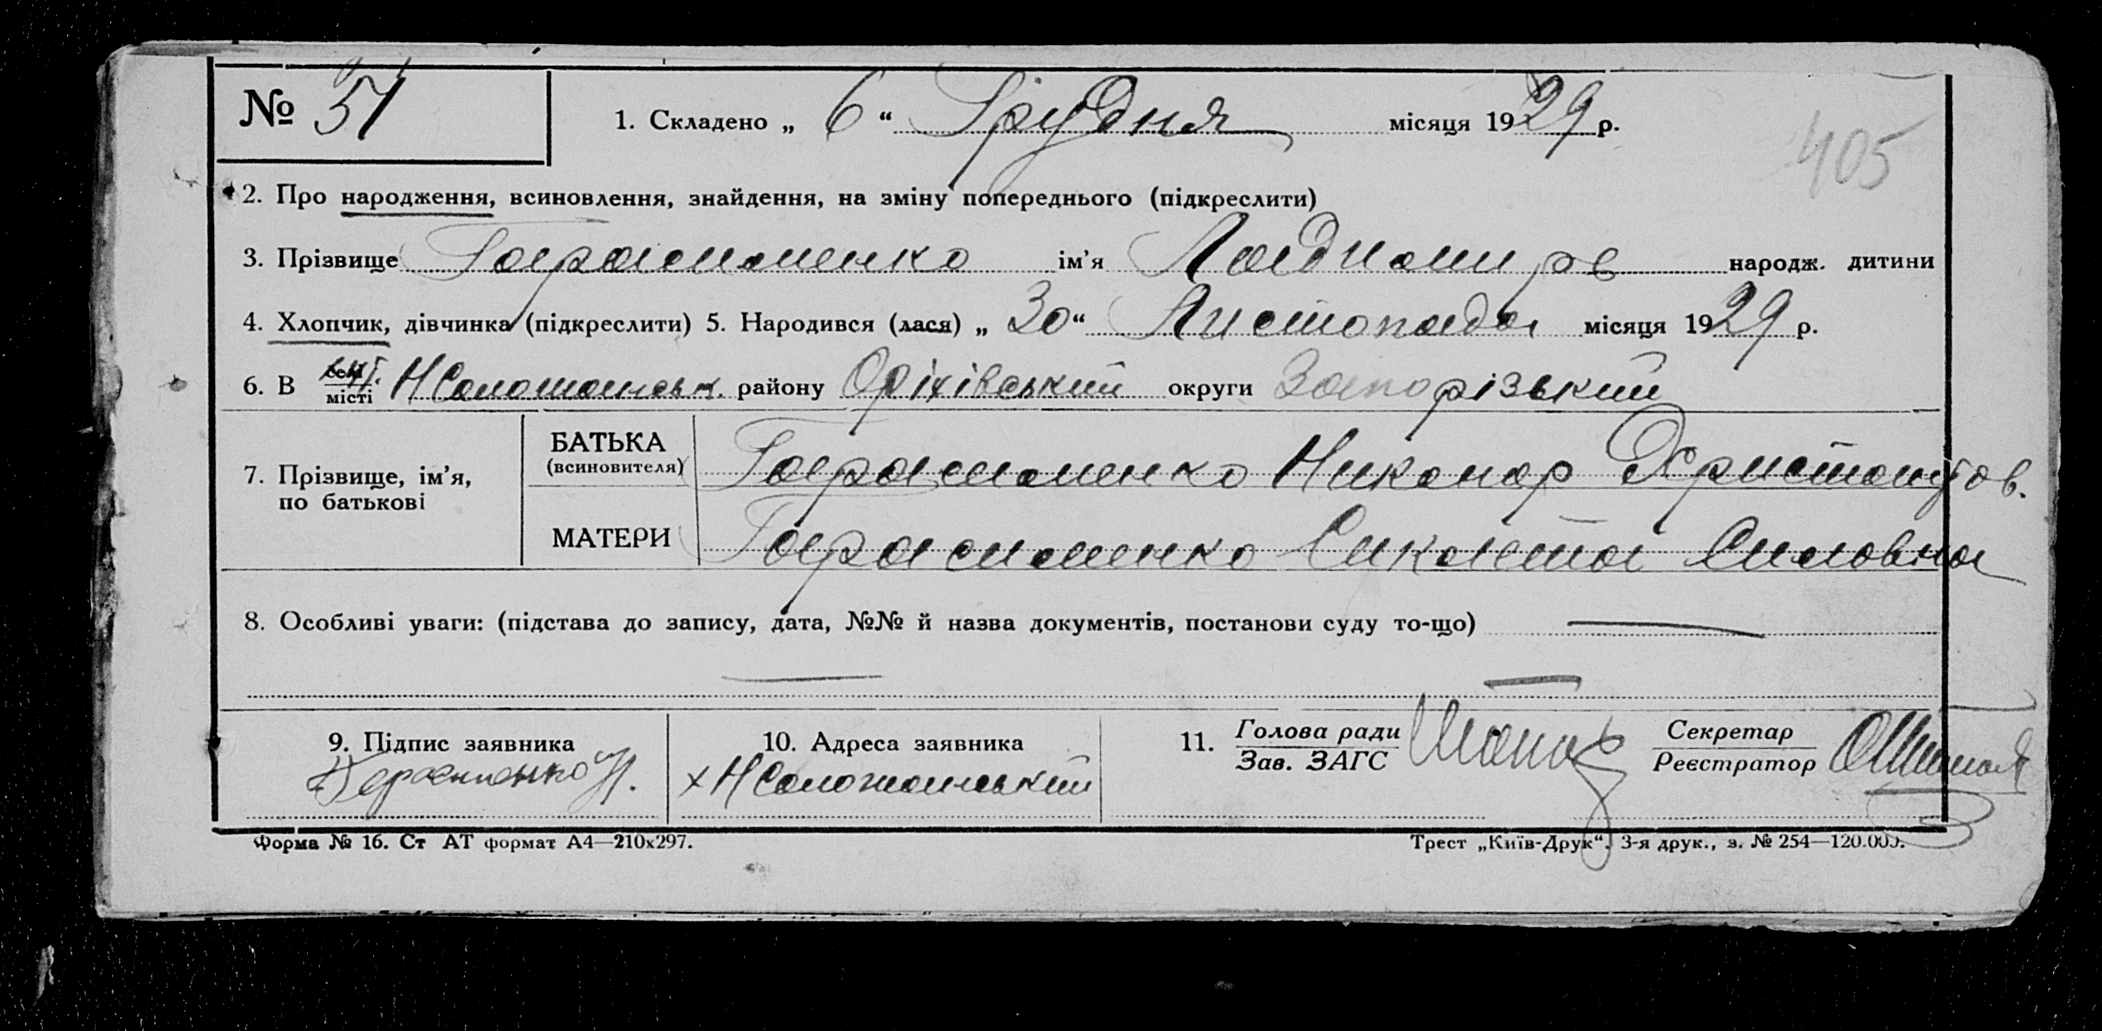 № 51 1. Складено „ 6 “ Грудня місяця 1929 р.
405
2. Про народження, всиновлення, знайдення, на зміну попереднього (підкреслити)
3. Прізвище Гарасименко ім’я народж. дитини
4. Хлопчик, дівчинка (підкреслити) 5. Народився (лася) „ 30 “ Листопада місяця 1929 р.
6. В селі місті району Оріхівський округи Запорізький
7. Прізвище, ім’я, по батькові
БАТЬКА (всиновителя) Гарасименко Никонор
МАТЕРИ Гарасименко
8. Особливі уваги: (підстава до запису, дата, №№ й назва документів, постанови суду то-що)
9. Підпис заявника 10. Адреса заявника 11. Голова ради Секретар
Зав. ЗАГС Реєстратор
Форма № 16. Ст АТ формат А4—210х297. Трест „Київ-Друк“. 3-я друк., з. № 254—120.000.